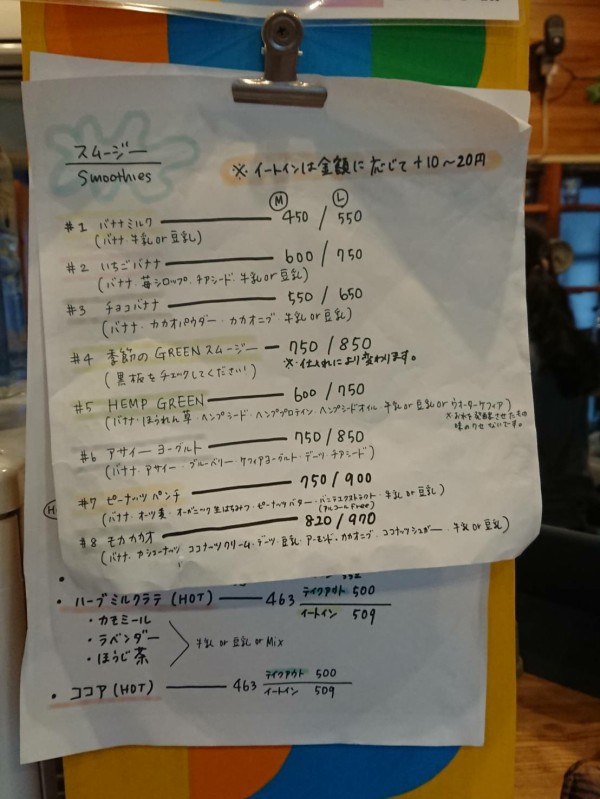 スムージー
Smoothies
※ イートインは金額に応じて +10～20円
Ⓜ Ⓛ
#1 バナナミルク 450 / 550
(バナナ・牛乳 or 豆乳)
#2 いちごバナナ 600 / 750
(バナナ・苺シロップ・チアシード・牛乳 or 豆乳)
#3 チョコバナナ 550 / 650
(バナナ・カカオパウダー・カカオニブ・牛乳 or 豆乳)
#4 季節のGREENスムージー 750 / 850
(黒板をチェックしてください!) ※仕入れにより変わります。
#5 HEMP GREEN 600 / 750
(バナナ・ほうれん草・ヘンプシード・ヘンププロテイン・ヘンプシードオイル・牛乳 or 豆乳 or ウォーターケフィア)
※お水を発酵させたもの
味のクセないです。
#6 アサイーヨーグルト 750 / 850
(バナナ・アサイー・ブルーベリー・ケフィアヨーグルト・デーツ・チアシード)
#7 ピーナッツパンチ 750 / 900
(バナナ・オーツ麦・オーガニック生はちみつ・ピーナッツバター・バニラエクストラクト・牛乳 or 豆乳)
(アルコールFree)
#8 モカカカオ 820 / 970
(バナナ・カシューナッツ・ココナッツクリーム・デーツ・豆乳・アーモンド・カカオニブ・ココナッツシュガー・牛乳 or 豆乳)
・ハーブミルクラテ (HOT) 463 テイクアウト 500
イートイン 509
・カモミール
・ラベンダー
・ほうじ茶
牛乳 or 豆乳 or Mix
・ココア (HOT) 463 テイクアウト 500
イートイン 509